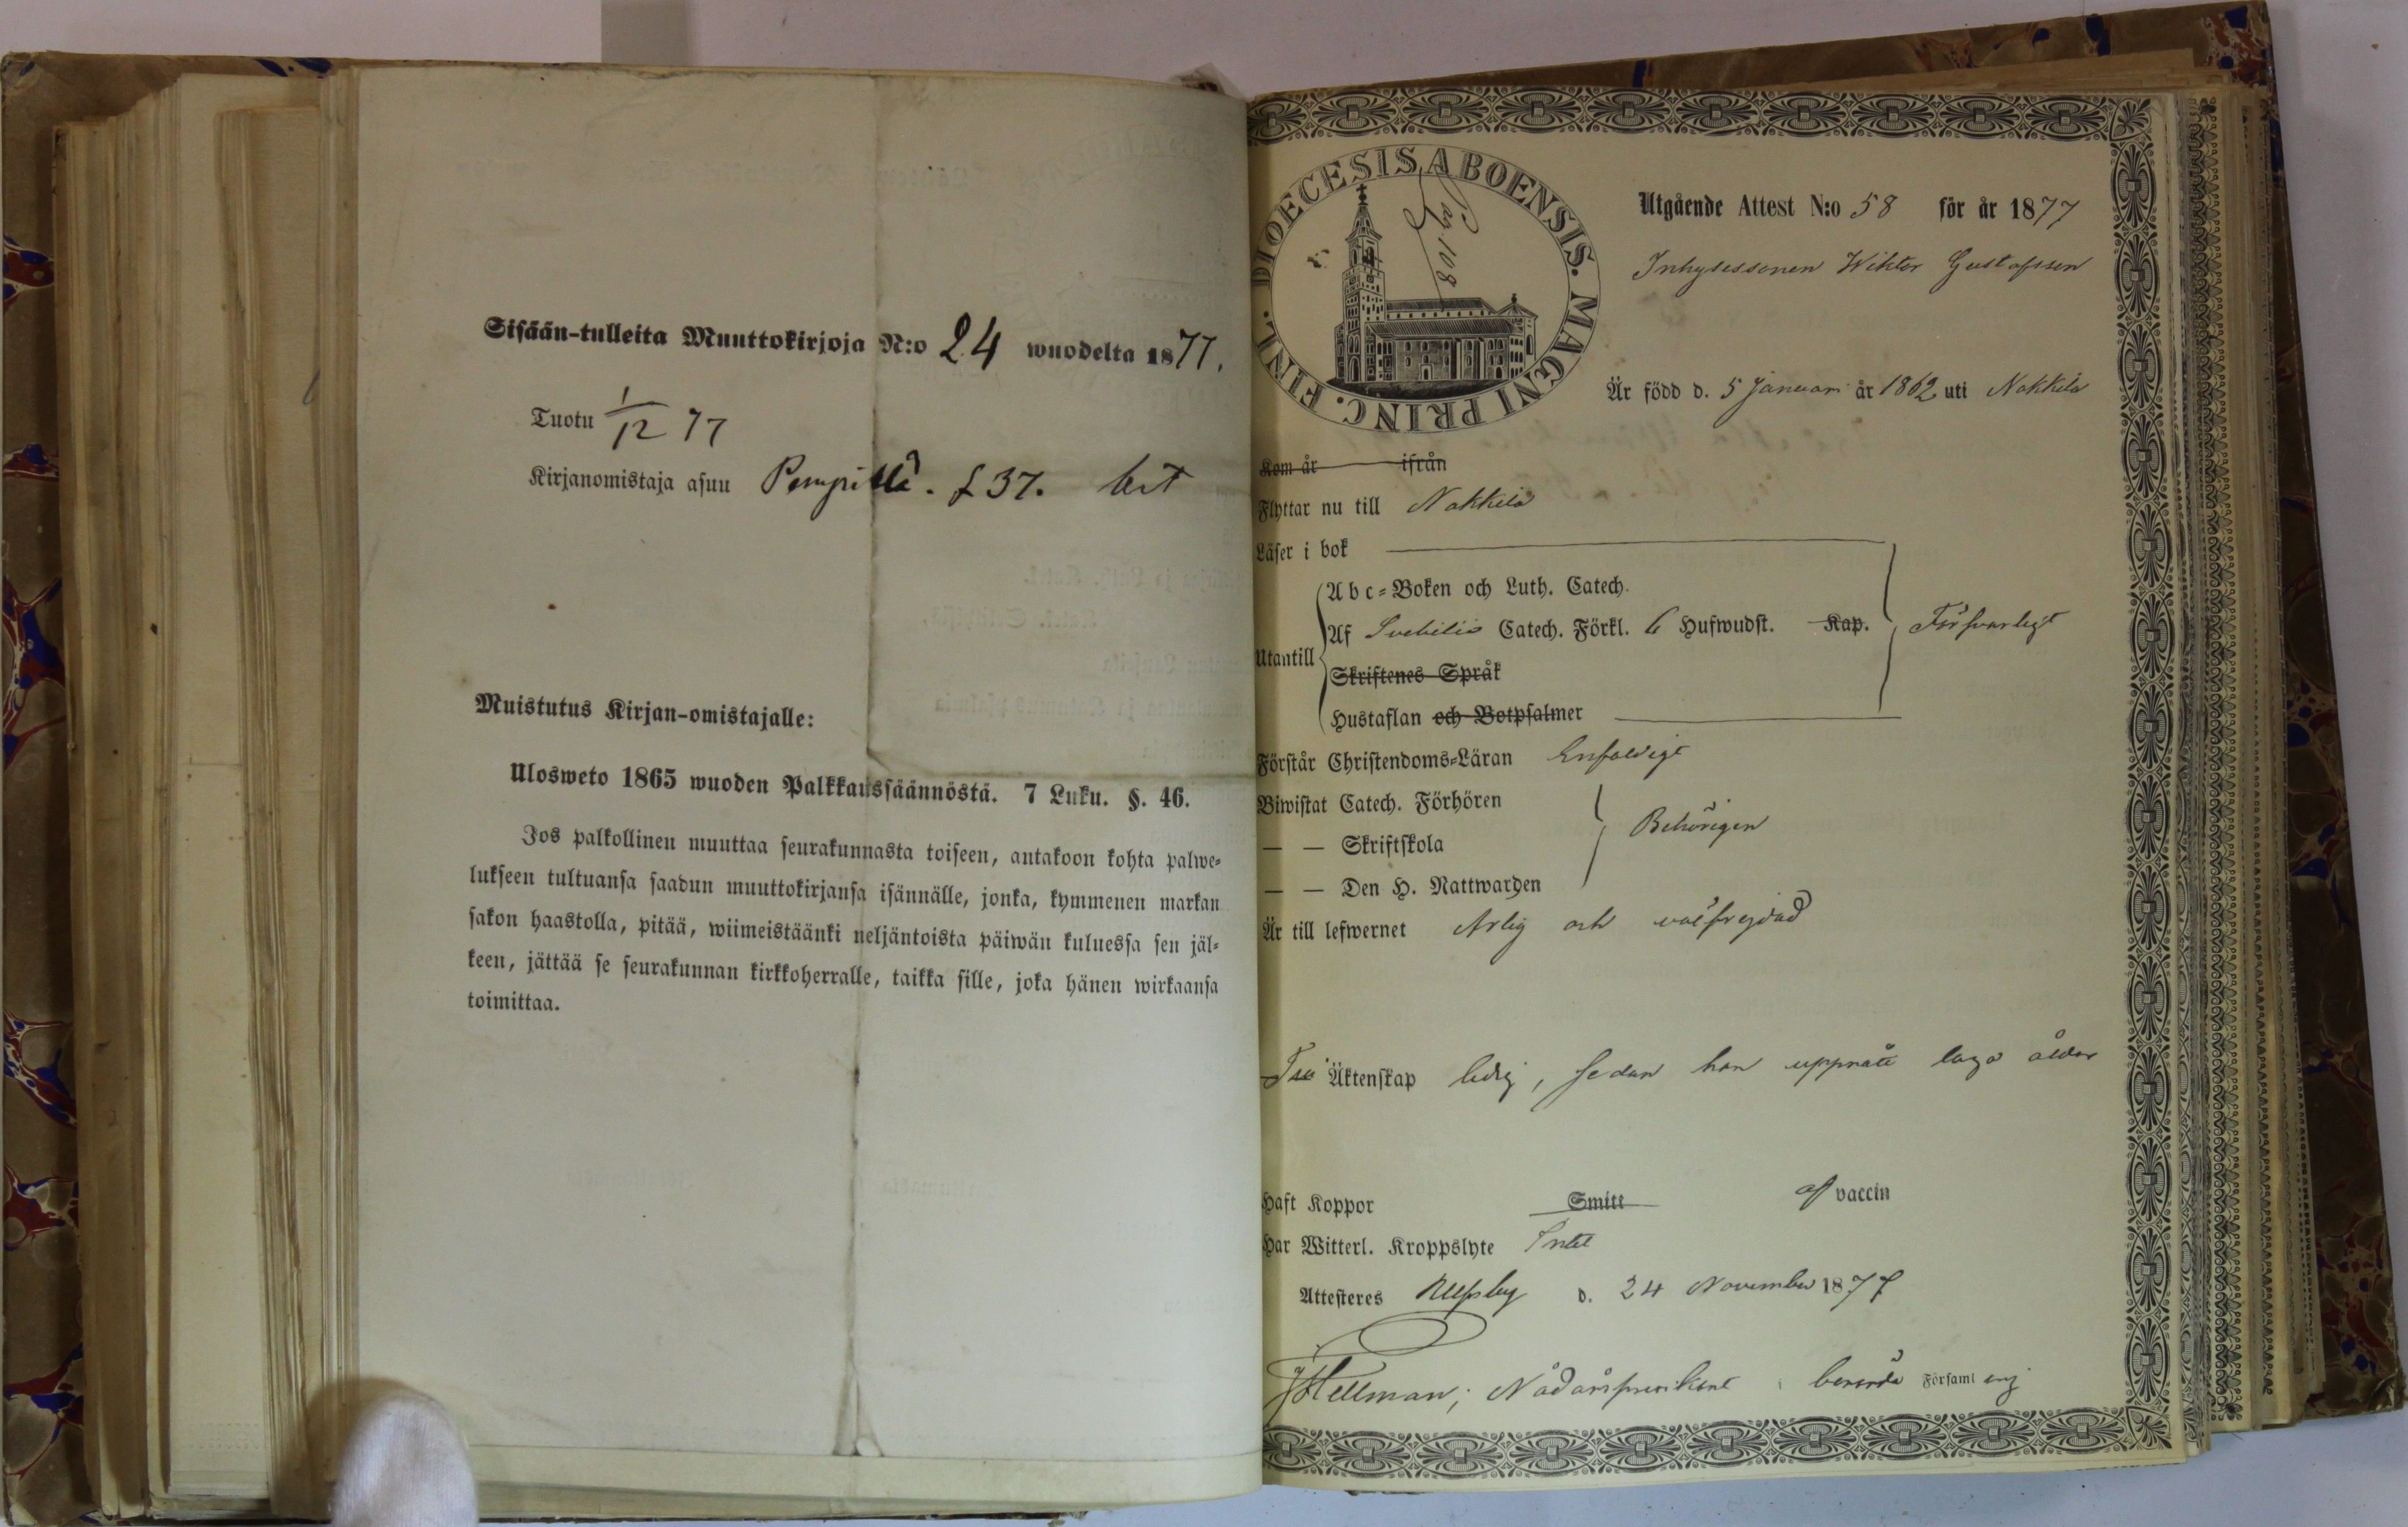 Sisään-tulleita Muuttokirjoja N:o 24 wuodelta 1877.
Tuotu 1/12 77
Kirjanomistaja asuu Pempillä. f 37.
Muistutus Kirjan-omistajalle:
Ulosweto 1865 wuoden Palkkaussäännöstä. 7 Luku. §. 46.
Jos palkollinen muuttaa seurakunnasta toiseen, antakoon kohta palwe-
lukseen tultuansa saadun muuttokirjansa isännälle, jonka, kymmenen markan
sakon haastolla, pitää, wiimeistäänki neljäntoista päiwän kuluessa sen jäl-
keen, jättää se seurakunnan kirkkoherralle, taikka sille, joka hänen wirkaansa
toimittaa.
DIOECESIS ABOENSIS. MAGNI PRINC. FINL.
Pag. 108
Utgående Attest N:o 58 för år 1877
Inhysessonen Wiktor Gustafsson
Är född d. 5 Januari år 1862 uti Nakkila
Kom år ifrån
Flyttar nu till Nakkila
Läser i bok
Utantill
A b c-Boken och Luth. Catech.
Af Svebilii Catech. Förkl. 6 Hufwudst. Kap. Försvarligt
Skriftenes Språk
Hustaflan och Botpsalmer
Förstår Christendoms-Läran Enfaldigt
Biwistat Catech. Förhören
— — Skriftskola Behörigen
— — Den H. Nattwarden
Är till lefwernet Ärlig och välfrejdad
Till Äktenskap ledig, sedan han uppnått laga ålder
Haft Koppor Smitt af vaccin
Har Witterl. Kroppslyte Intet
Attesteres Ulfsby d. 24 November 1877
J Hellman, Nådårspredikant i berörde Församling